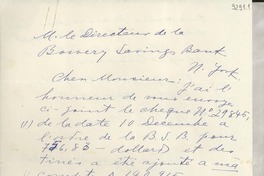 M. le Directeur de la
Bowery Savings Bank
N. York
Cher Monsieur: J'ai l'
honneur de vous envoyer
ci-joint le cheque Nº 29845,
(1) de la date 10 Decembre a
l'ordre de la B.S.B. pour
756,83 - dollars et des
tinés a été ajouté a ma